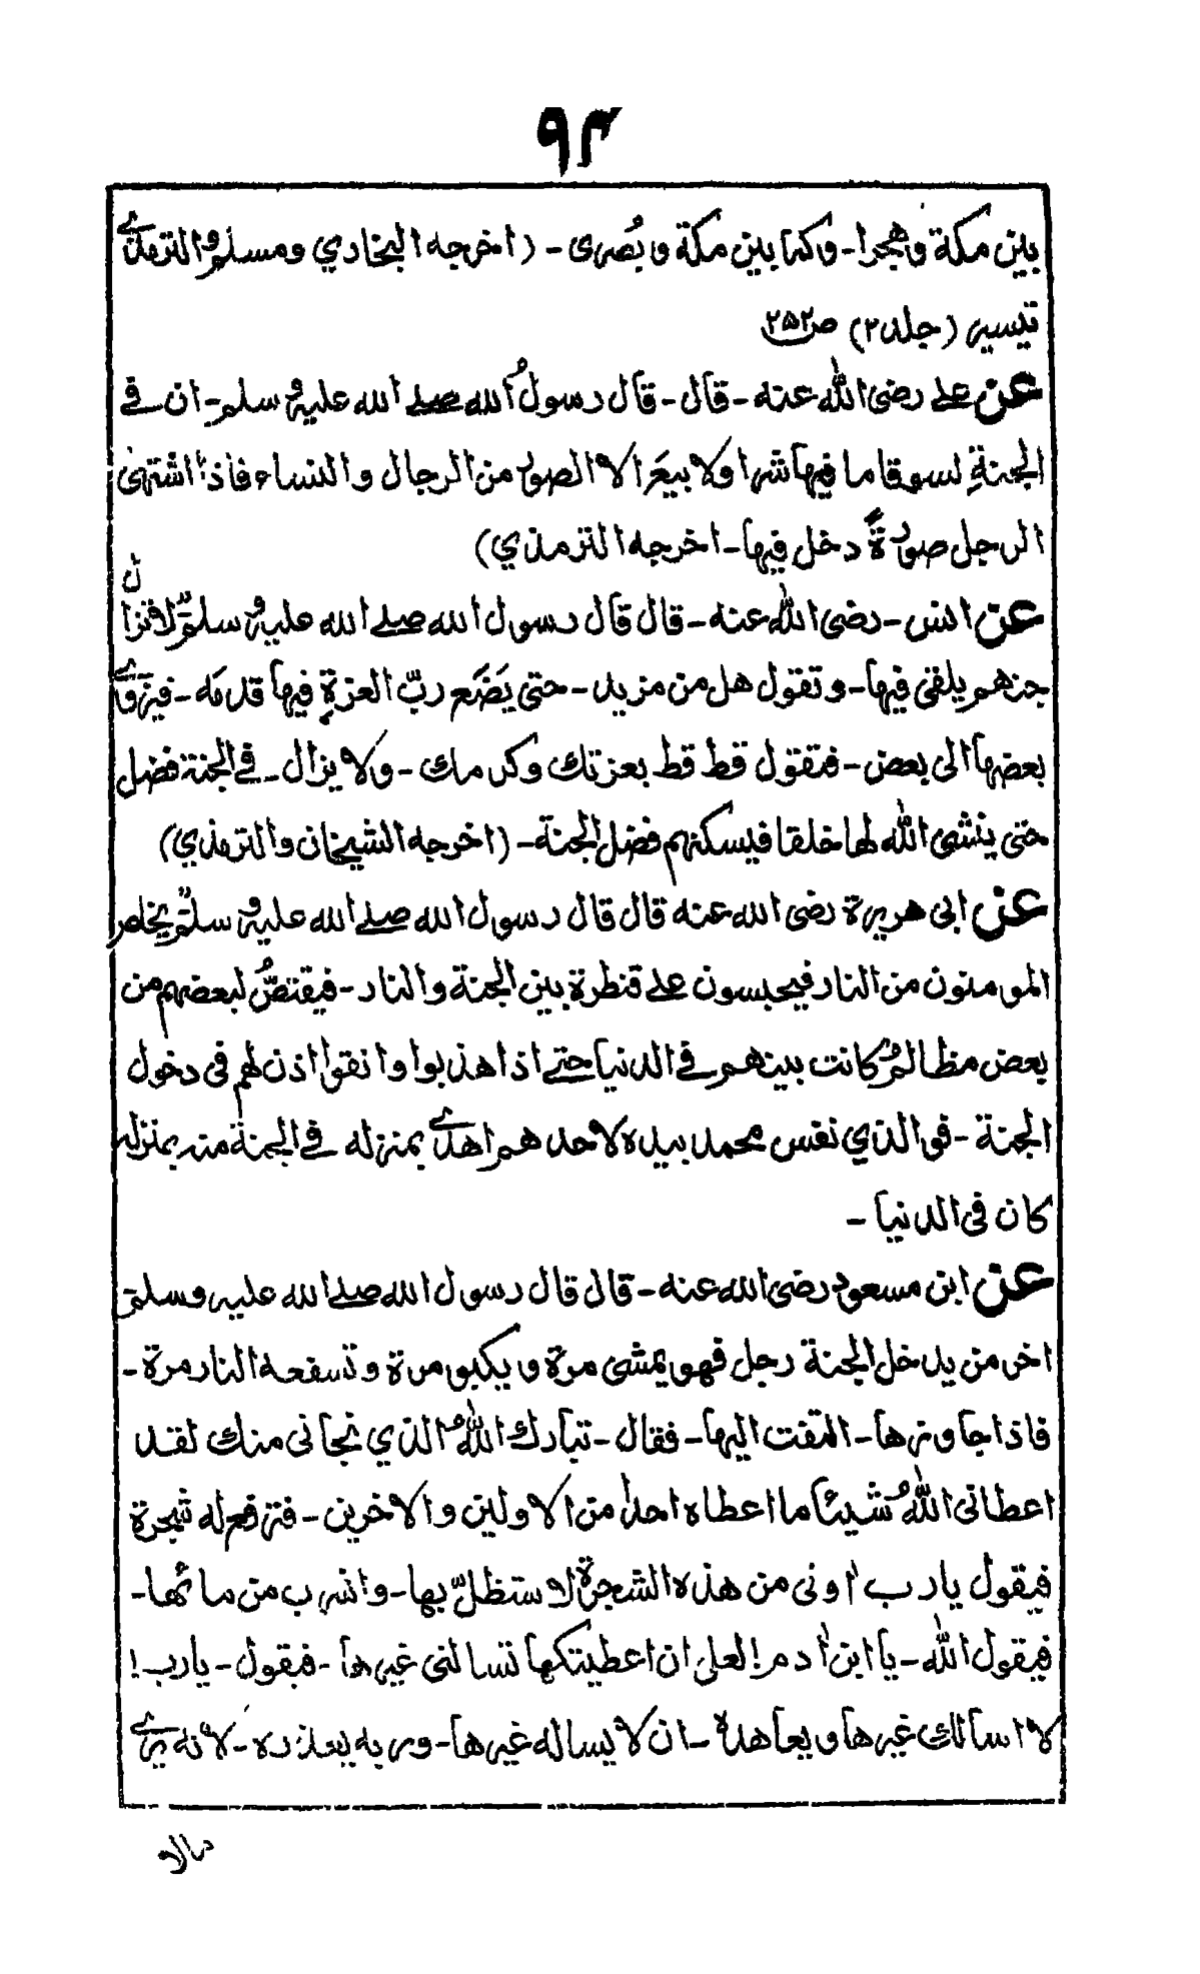 ۹۴
بين مكة وهجرا - وكما بين مكة و بُصرى - (اخرجه البخاري ومسلم والترمذے
تيسير (جلد ۲) ص ۲۵۲
عن علے رضى الله عنه - قال - قال رسولُ الله صلے الله عليه و سلم - ان فے
الجنةِ لسوقا ما فيها شرا ولا بيعَ الا الصور من الرجال والنساء فاذا اشتهىٰ
الرجل صورةً دخل فيها - اخرجه الترمذي)
عن انس - رضى الله عنه - قال قال رسول الله صلے الله عليه و سلم لا تزال
جهنم يلقى فيها - و تقول هل من مزيد - حتى يَضَع ربّ العزةِ فيها قدمه - فيزوےٰ
بعضها الى بعض - فتقول قط قط بعزتك وكرمك - ولا يزال - فے الجنة فضل
حتى ينشئ الله لها خلقا فيسكنهم فضل الجنة - (اخرجه الشيخان والترمذي)
عن ابى هريرة رضى الله عنه قال قال رسول الله صلے الله عليه و سلم يخلص
المومنون من النار فيحبسون علے قنطرة بين الجنة والنار - فيقتصُّ لبعضهم من
بعض مظالمُ كانت بينهم فے الدنيا حتے اذا هذبوا وانقوا اذن لهم فى دخول
الجنة - فو الذي نفس محمد بيده لاحدهم اهدےٰ بمنزله فے الجنة منه بمنزله
كان فى الدنيا -
عن ابن مسعود رضى الله عنه - قال قال رسول الله صلے الله عليه وسلم
اخر من يدخل الجنة رجل فهو يمشى مرة و يكبو مرة و تسفعه النار مرة -
فاذا جاوزها - التفت اليها - فقال - تبارك اللهُ الذي نجانى منك لقد
اعطانى اللهُ شيئا ما اعطاه احدا من الاولين والاخرين - فترفع له شجرة
فيقول يا رب ادنى من هذه الشجرة لاستظلّ بها - واشرب من مائها -
فيقول الله - يا ابن اٰدم! لعلى ان اعطيتكها تسالنى غيرها - فيقول - يا رب!
لا اسالك غيرها و يعاهده - ان لا يساله غيرها - وربه يعذره - لانه يرےٰ
مالا